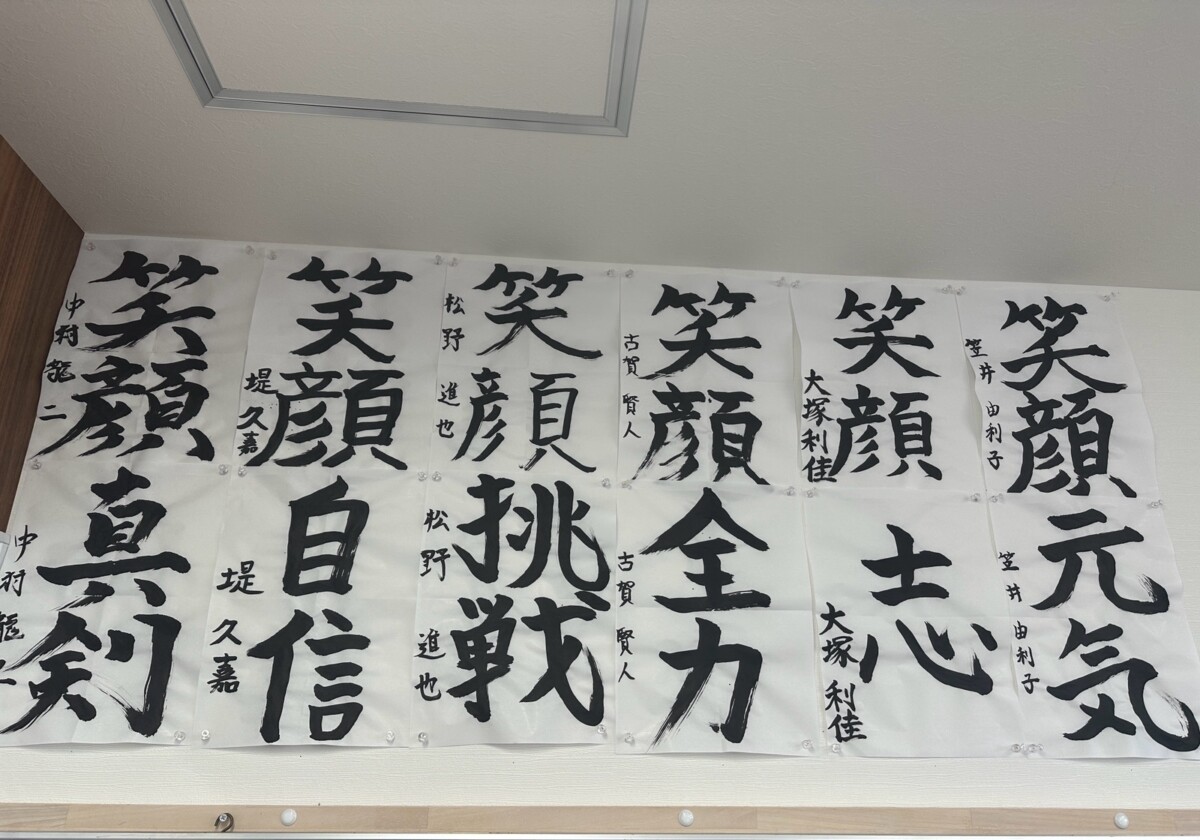 笑顔
笠井 由利子
笑顔
大塚利佳
笑顔
古賀 賢人
笑顔
松野 進也
笑顔
堤 久嘉
笑顔
中村龍二
元気
笠井 由利子
志
大塚利佳
全力
古賀 賢人
挑戦
松野 進也
自信
堤 久嘉
真剣
中村龍二